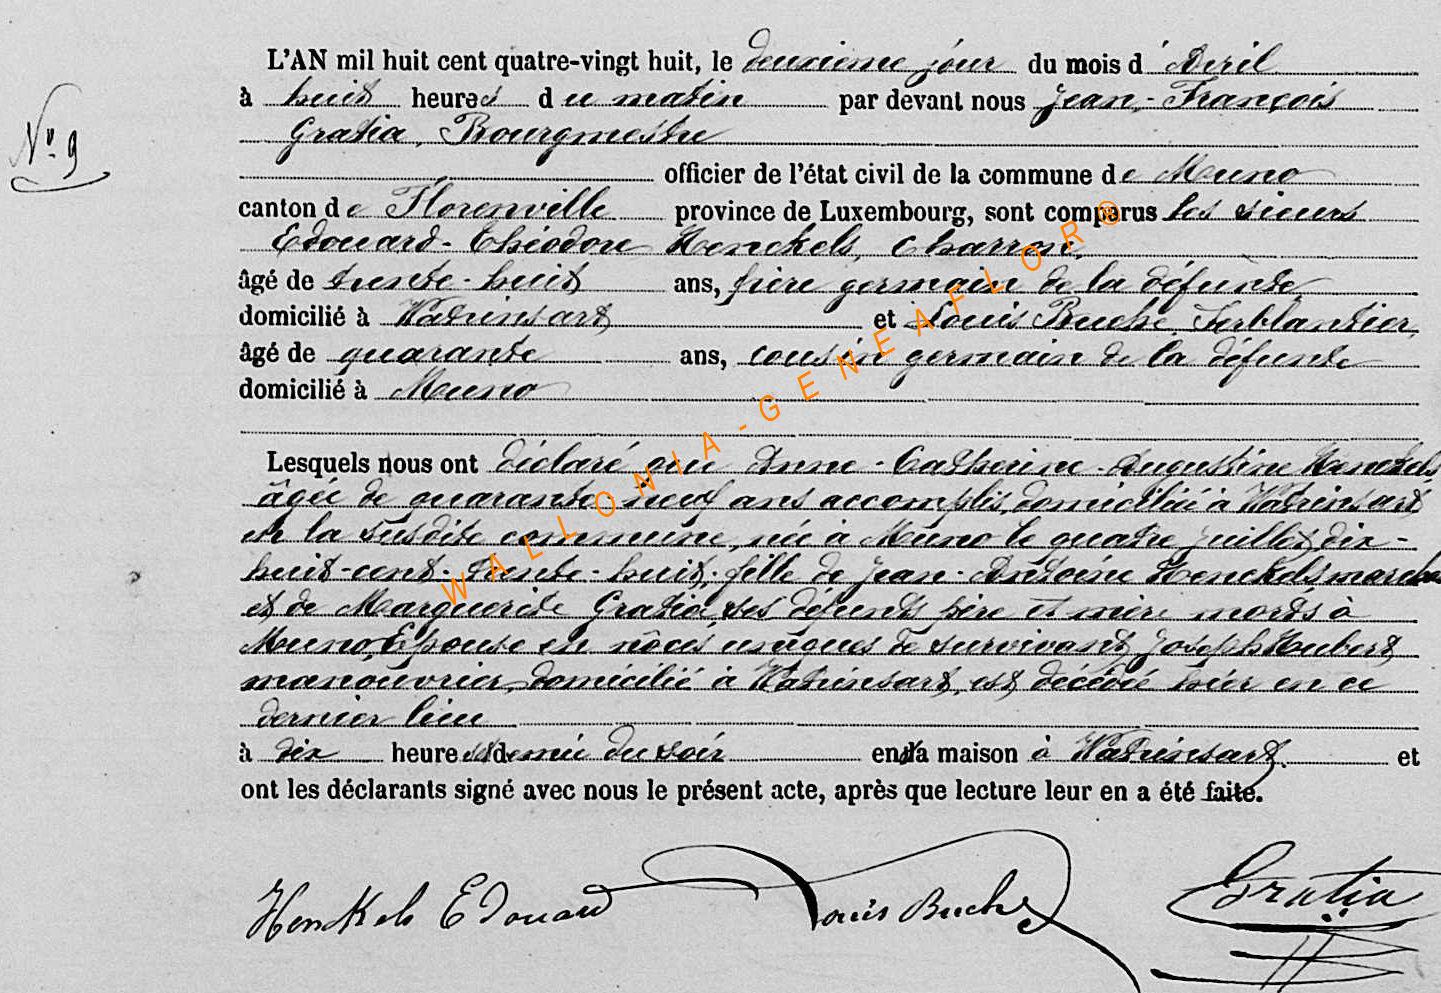 L'AN mil huit cent quatre-vingt huit, le deuxième jour du mois d'Avril
à huit heures du matin par devant nous Jean-François
N° 9
Gratia, Bourgmestre
officier de l'état civil de la commune de Muno
canton de Florenville province de Luxembourg, sont comparus les sieurs
Edouard-Théodore Henckels, charron,
âgé de trente-huit ans, frère germain de la défunte
domicilié à Watrinsart et Louis Buché, Ferblantier,
âgé de quarante ans, cousin germain de la défunte
domicilié à Muno
Lesquels nous ont déclaré que Anne-Catherine-Augustine Henckels
âgée de quarante neuf ans accomplis, domiciliée à Watrinsart
de la susdite commune, née à Muno le quatre juillet dix-
huit-cent-trente-huit, fille de Jean-Antoine Henckels
et de Marguerite Gratia, ses défunts père et mère morts à
Muno, Epouse en nôces uniques de survivant Joseph Hubert,
manouvrier, domicilié à Watrinsart, est décédée hier en ce
dernier lieu
à dix heures et demie du soir en sa maison à Watrinsart. et
ont les déclarants signé avec nous le présent acte, après que lecture leur en a été faite.
Henckels Edouard Louis Buché Gratia
WALLONIA-GENEAFLOR®